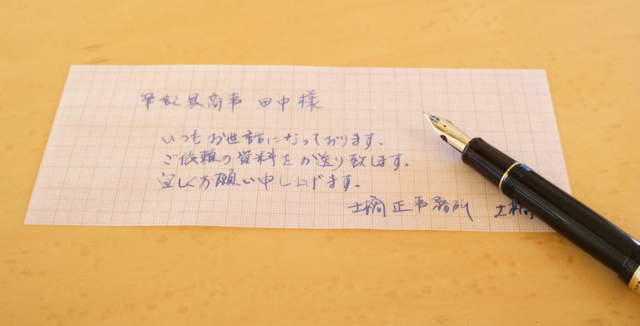 筆記具商事 田中様
いつもお世話になっております。
ご依頼の資料をお送り致します。
宜しくお願い申し上げます。
土橋正事務所 土橋